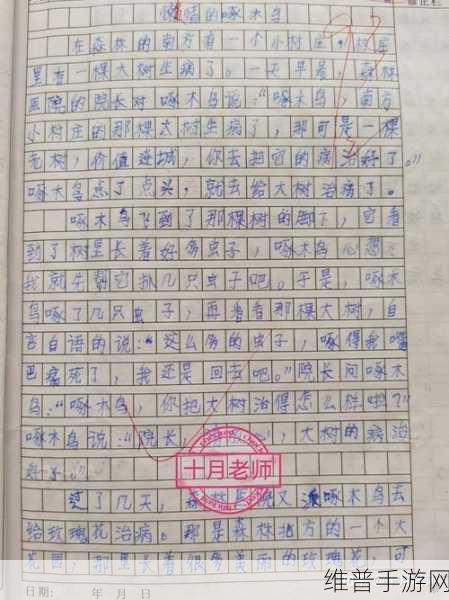 懒惰的啄木鸟
在森林的南方有一个小村庄，村庄
里有一棵大树生病了。一天早晨，森林
医院的院长对啄木鸟说：“啄木鸟，南方
小村庄的那棵大树生病了，那可是一棵
老树，价值连城，你去把它的病治好了。”
啄木鸟点了点头，就去给大树治病了。
啄木鸟飞到了那棵树的脚下，它看
到了树里长着好多虫子，啄木鸟心想：
我就先帮它扒几只虫子吧。于是，啄木
鸟啄了几只虫子，再看看那棵大树，自
言自语的说：“这么多的虫子，啄得我嘴
巴痛死了，我还是回去吧。”院长问啄木
鸟：“啄木鸟，你把大树治得怎么样啦？”
啄木鸟说：“院长，大树的病治
好了。”
十月老师
过了几天，森林医院又派啄木鸟去
给玫瑰花治病。那是森林北方的一个大
花园，那里长着很多美丽的玫瑰花，可
日期： 年 月 日
维普手游网